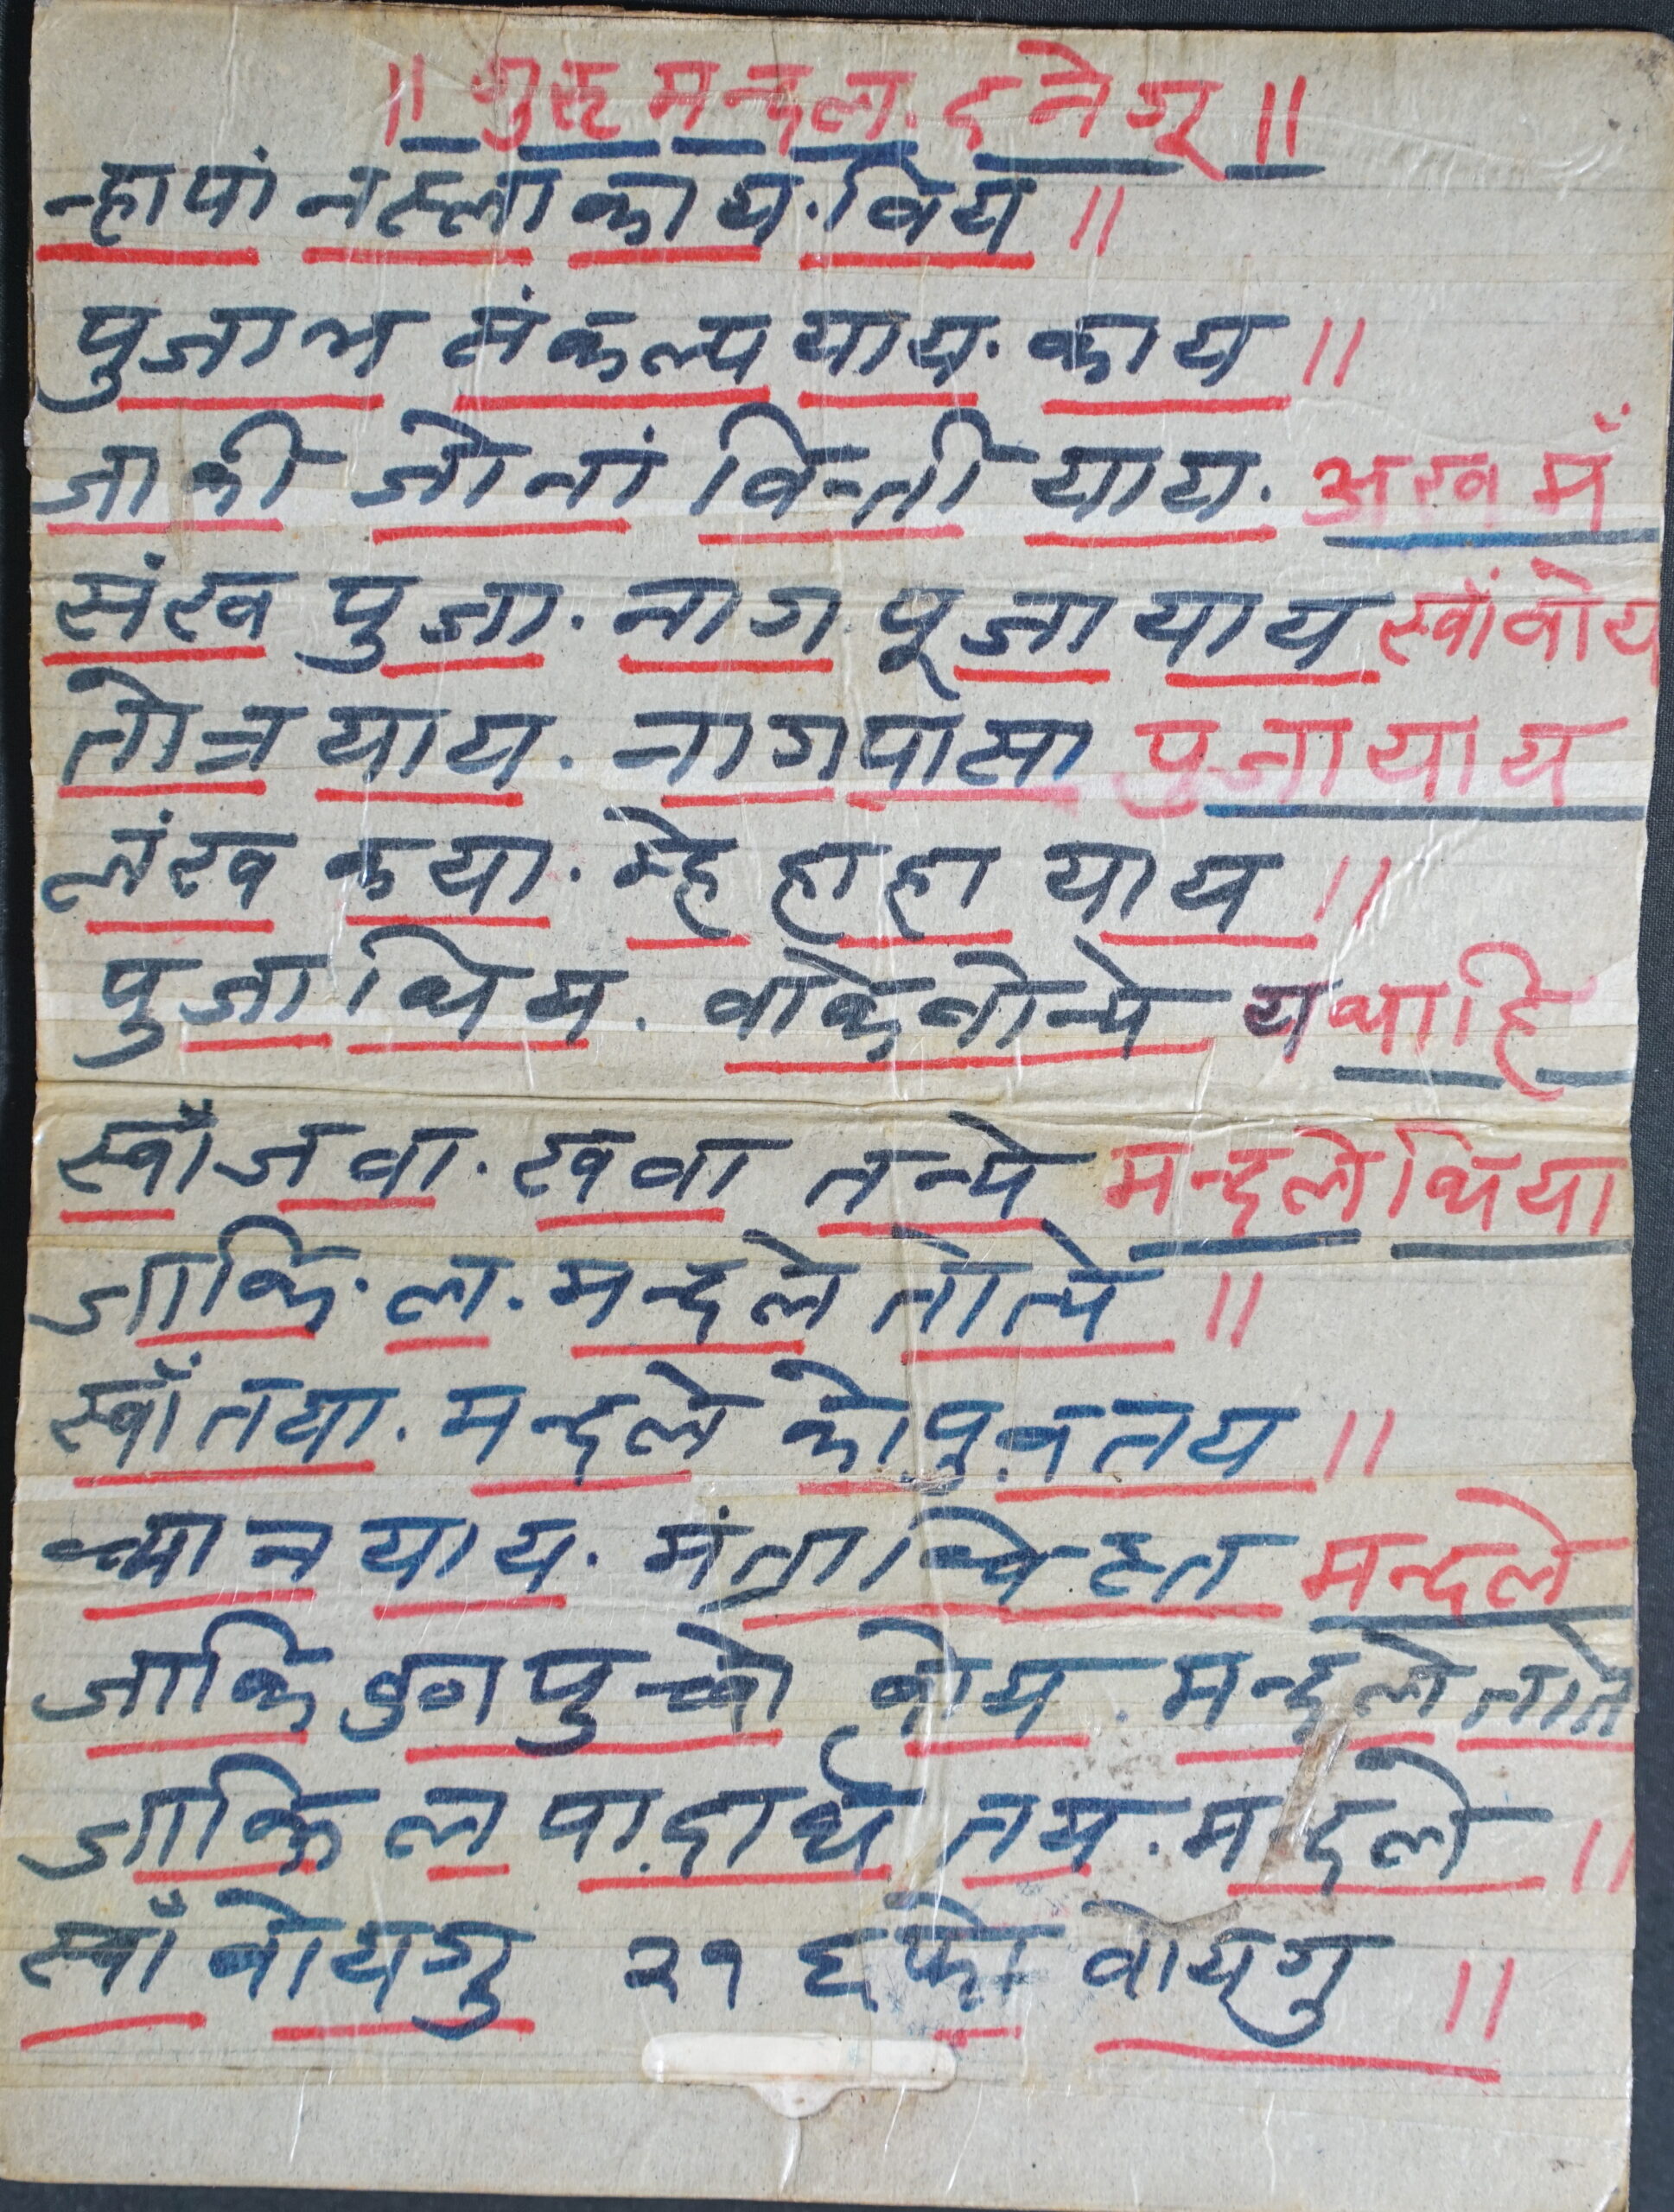 ॥ गुरु मन्दल. दनेगू ॥
न्हापां नस्ला काय. विय ॥
पुजाभ संकल्प याय. काय ॥
जाकी जोनां विन्ती याय. अखमँ
संख पुजा. नाग पूजा याय स्वाँवोय
तोत्र याय. नागपासा पुजा याय
लंख कया. म्हे हाहा याय ॥
पुजा थिय. वाकेवोन्ये यथाहि
स्वाँ जवा. खवा तन्ये मन्दले थिया
जाकि. ल. मन्दले तोत्ये ॥
स्वाँ तया. मन्दले को.पु.वतय ॥
ध्यान याय. मंतापिस्त मन्दले
जाकि वोय. मन्दले तोत
जाकि ल पा.दार्थ तय. मन्दले ॥
स्वाँ वोयगु २१ घफो वोयगु ॥